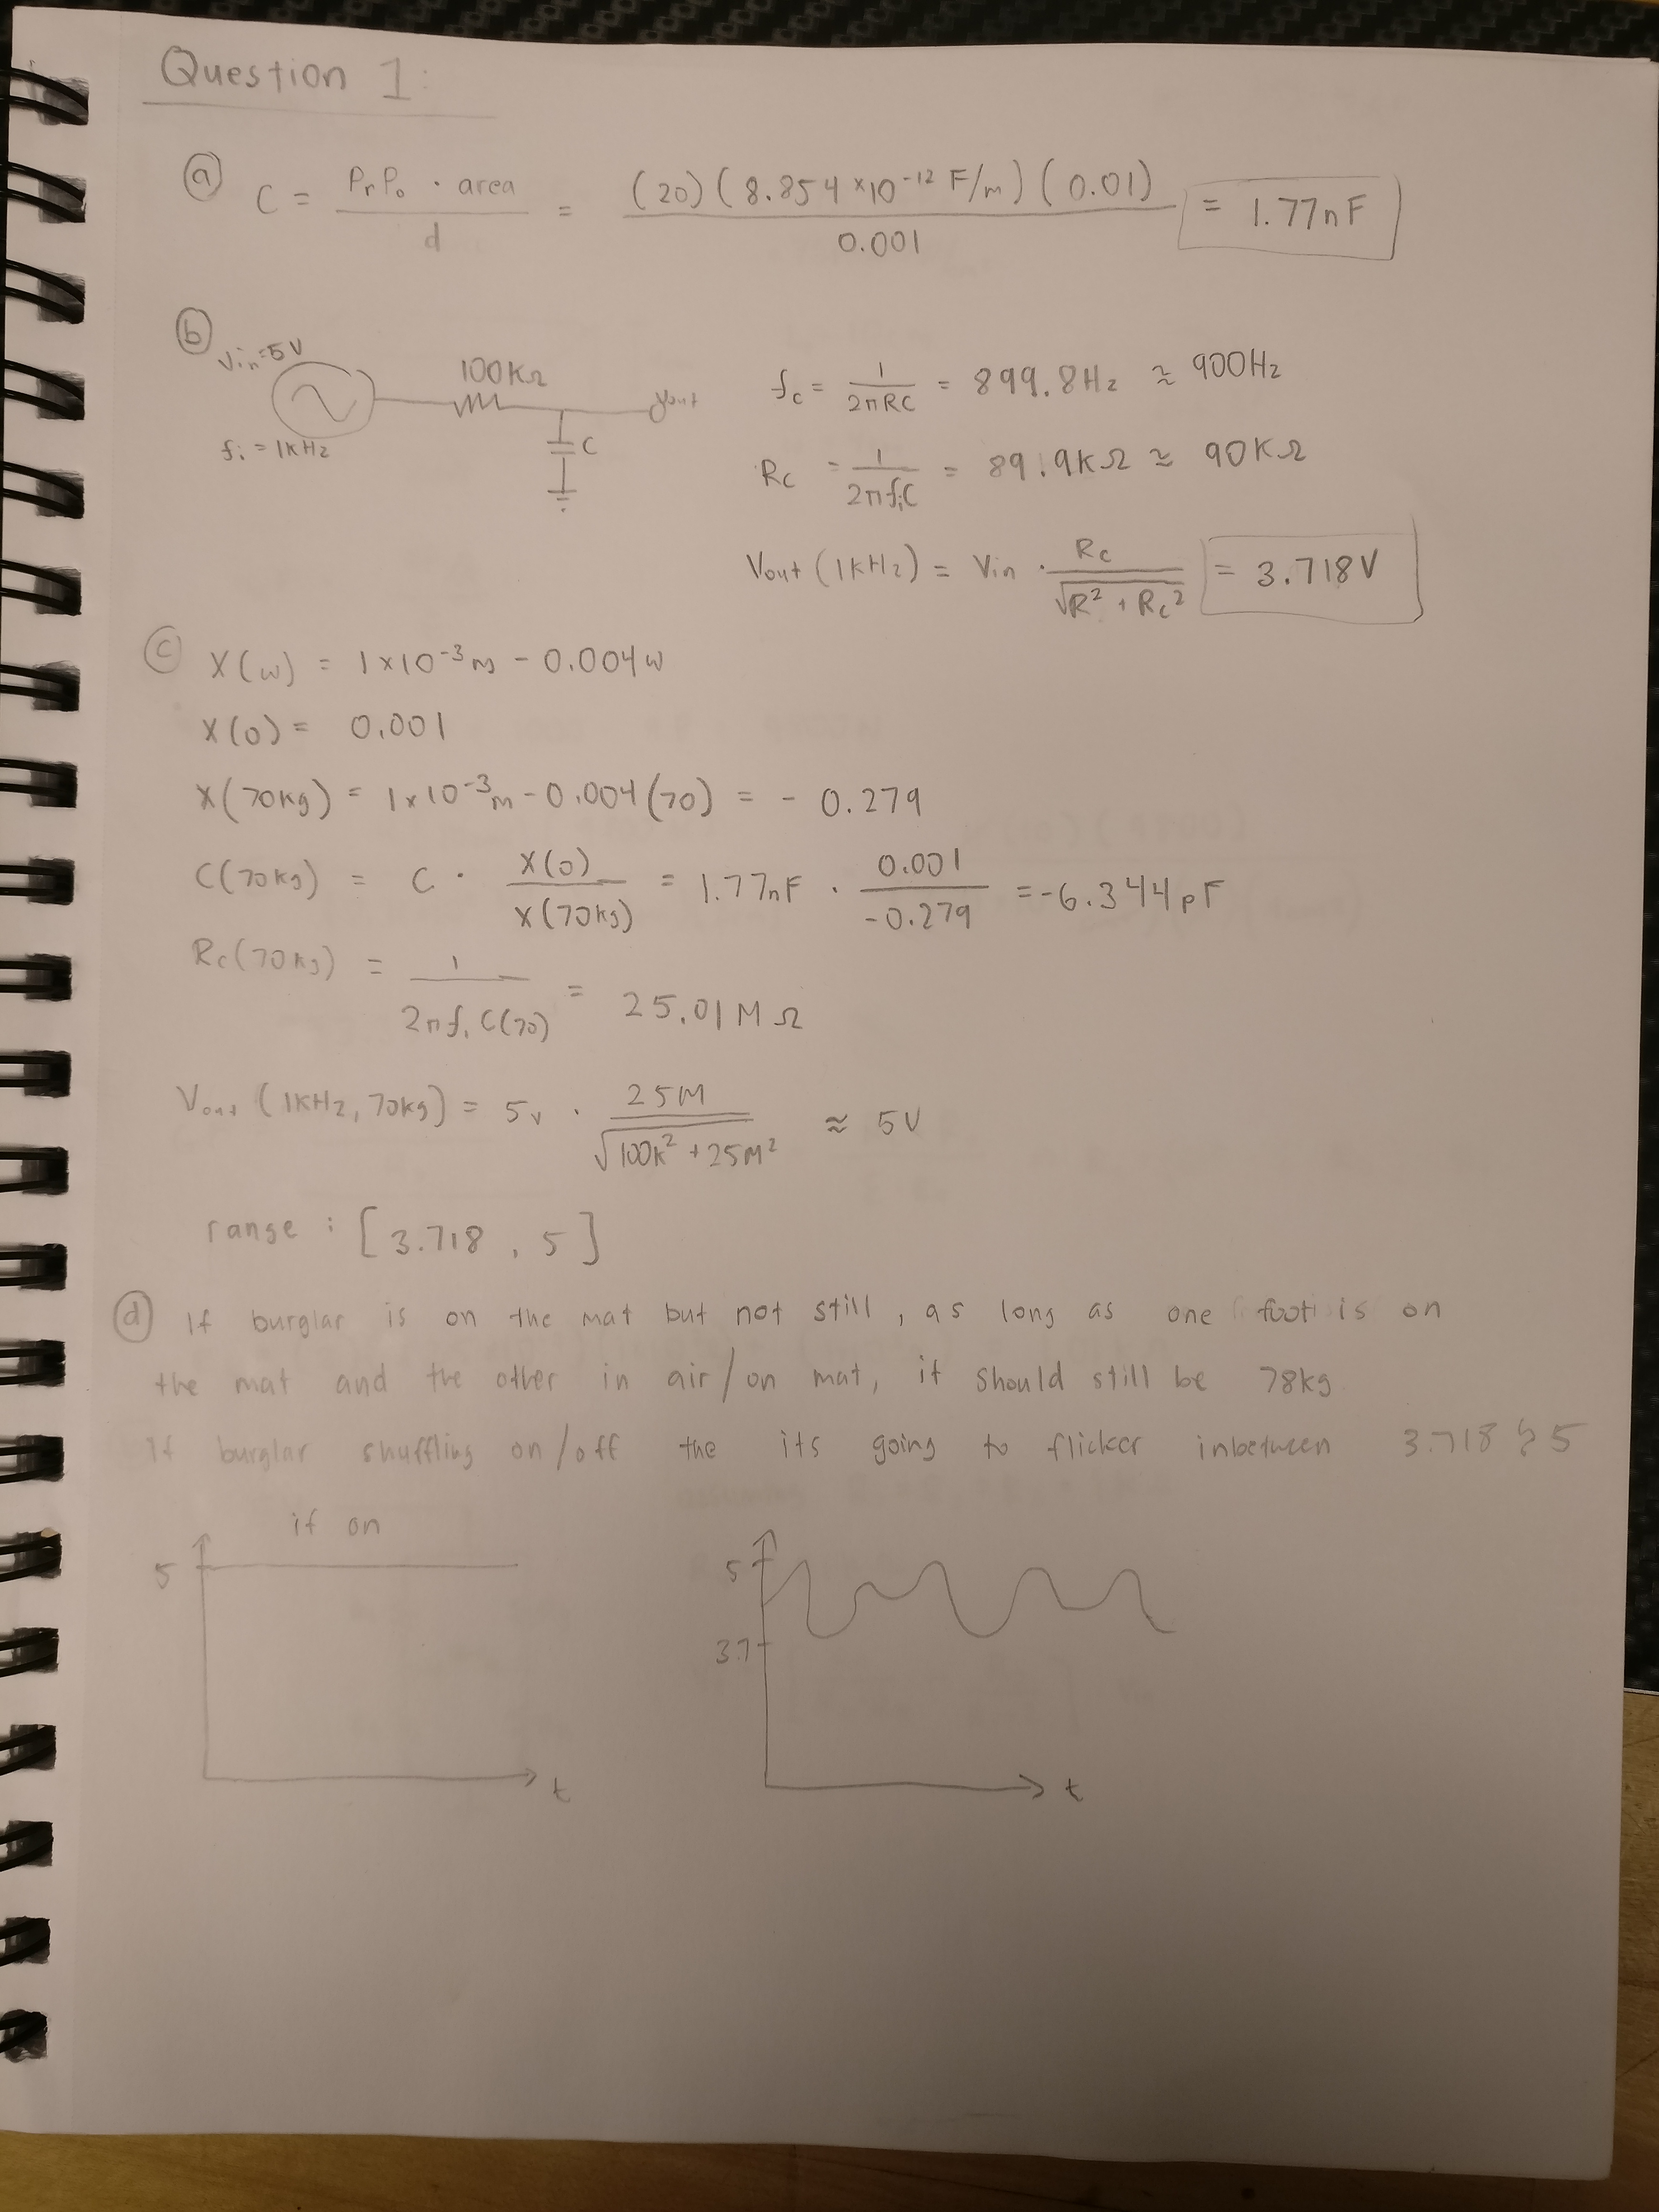 Question 1:
ⓐ C = PrPo · area / d = (20)(8.854 ×10⁻¹² F/m)(0.01) / 0.001 = 1.77nF
ⓑ Vin=5V
100KΩ
Vout
fi = 1KHz
C
fc = 1 / 2πRC = 899.8Hz ≈ 900Hz
Rc = 1 / 2πfiC = 89.9KΩ ≈ 90KΩ
Vout (1KHz) = Vin · Rc / √R² + Rc² = 3.718V
ⓒ X(w) = 1×10⁻³m - 0.004w
X(0) = 0.001
X(70kg) = 1×10⁻³m - 0.004(70) = - 0.279
C(70kg) = C · X(0) / X(70kg) = 1.77nF · 0.001 / -0.279 = -6.344pF
Rc(70kg) = 1 / 2πfiC(70) = 25.01MΩ
Vout (1KHz, 70kg) = 5v · 25M / √100K² + 25M² ≈ 5V
range : [3.718, 5]
ⓓ If burglar is on the mat but not still, as long as one foot is on
the mat and the other in air/on mat, it should still be 78kg
If burglar shuffling on/off the its going to flicker inbetween 3.718 & 5
if on
5
t
5
3.7
t